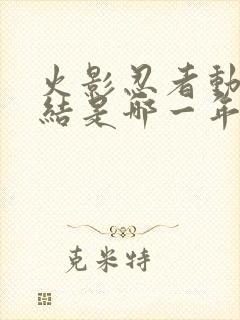 火影忍者動
結是哪一年
克米特